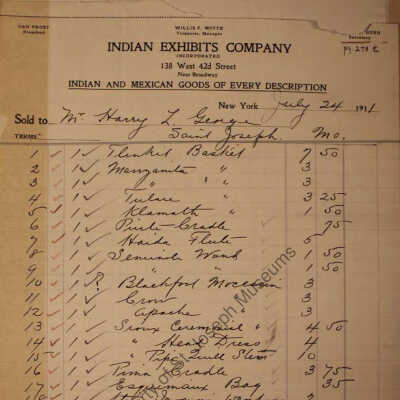 DAN FROST
President
WILLIS F. WHITE
Treasurer, Manager
Secretary
INDIAN EXHIBITS COMPANY
INCORPORATED
138 West 42d Street
Near Broadway
INDIAN AND MEXICAN GOODS OF EVERY DESCRIPTION
New York July 24 1911
Sold to Mr Harry L George
TERMS Saint Joseph, Mo.
1 1 Tlinket Basket 7 50
2 1 Manzanita " 3
3 1 " " 3
4 1 Tulare " 3 25
5 1 Klamath " 1 50
6 1 Piute Cradle 75
7 1 Haida Flute 5
8 1 Seminole Wand 1 50
9 1 " " 1 50
10 1 Blackfoot Moccasin 3
11 1 Crow " 3
12 1 Apache " 3
13 1 Sioux Ceremonial " 4 50
14 1 " Head Dress 4
15 1 " Pipe Quill Stem 10
16 1 Pima Cradle 3 75
17 1 Esquimaux Bag 35
18 1
St Joseph Museums